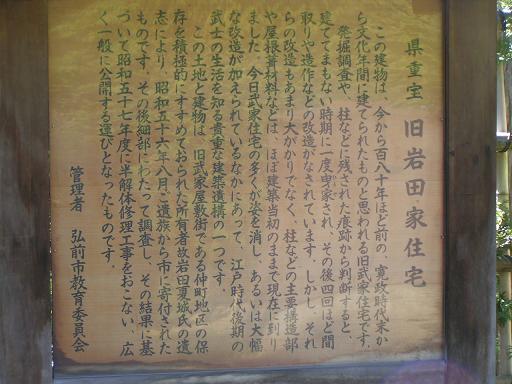 県重宝 旧岩田家住宅
この建物は、今から百八十年ほど前の、寛政時代末か
ら文化年間に建てられたものと思われる旧武家住宅です。
発掘調査や、柱などに残された痕跡から判断すると、
建ててまもない時期に一度曳家され、その後四回ほど間
取りや造作などの改造がなされています。しかし、それ
らの改造もあまり大がかりでなく、柱などの主要構造部
や屋根葺材料などは、ほぼ建築当初のままで現在に到り
ました。今日武家住宅の多くが姿を消し、あるいは大幅
な改造が加えられているなかにあって、江戸時代後期の
武士の生活を知る貴重な建築遺構の一つです。
この土地と建物は、旧武家屋敷街である仲町地区の保
存を積極的にすすめておられた所有者故岩田夏城氏の遺
志により、昭和五十六年八月ご遺族から市に寄付された
ものです。その後細部にわたって調査し、その結果に基
づいて昭和五十七年度に半解体修理工事をおこない、広
く一般に公開する運びとなったものです。
管理者 弘前市教育委員会